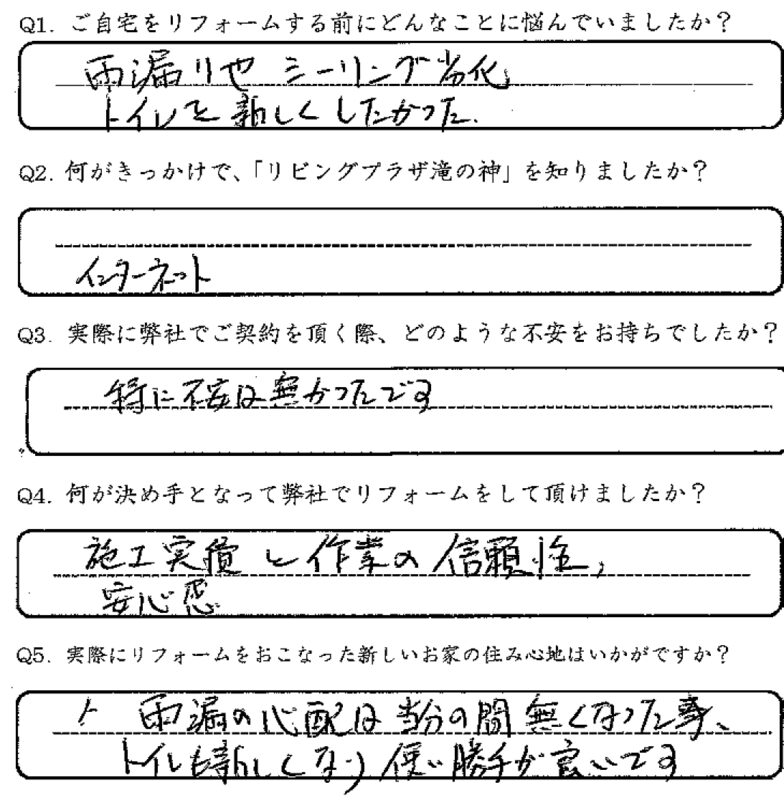 Q1. ご自宅をリフォームする前にどんなことに悩んでいましたか？
雨漏りや シーリング劣化
トイレを新しくしたかった.
Q2. 何がきっかけで、「リビングプラザ滝の神」を知りましたか？
インターネット
Q3. 実際に弊社でご契約を頂く際、どのような不安をお持ちでしたか？
特に不安は無かったです
Q4. 何が決め手となって弊社でリフォームをして頂けましたか？
施工実積と作業の信頼性,
安心感
Q5. 実際にリフォームをおこなった新しいお家の住み心地はいかがですか？
雨漏の心配は当分の間無くなった事、
トイレも新しくなり使い勝手が良いです